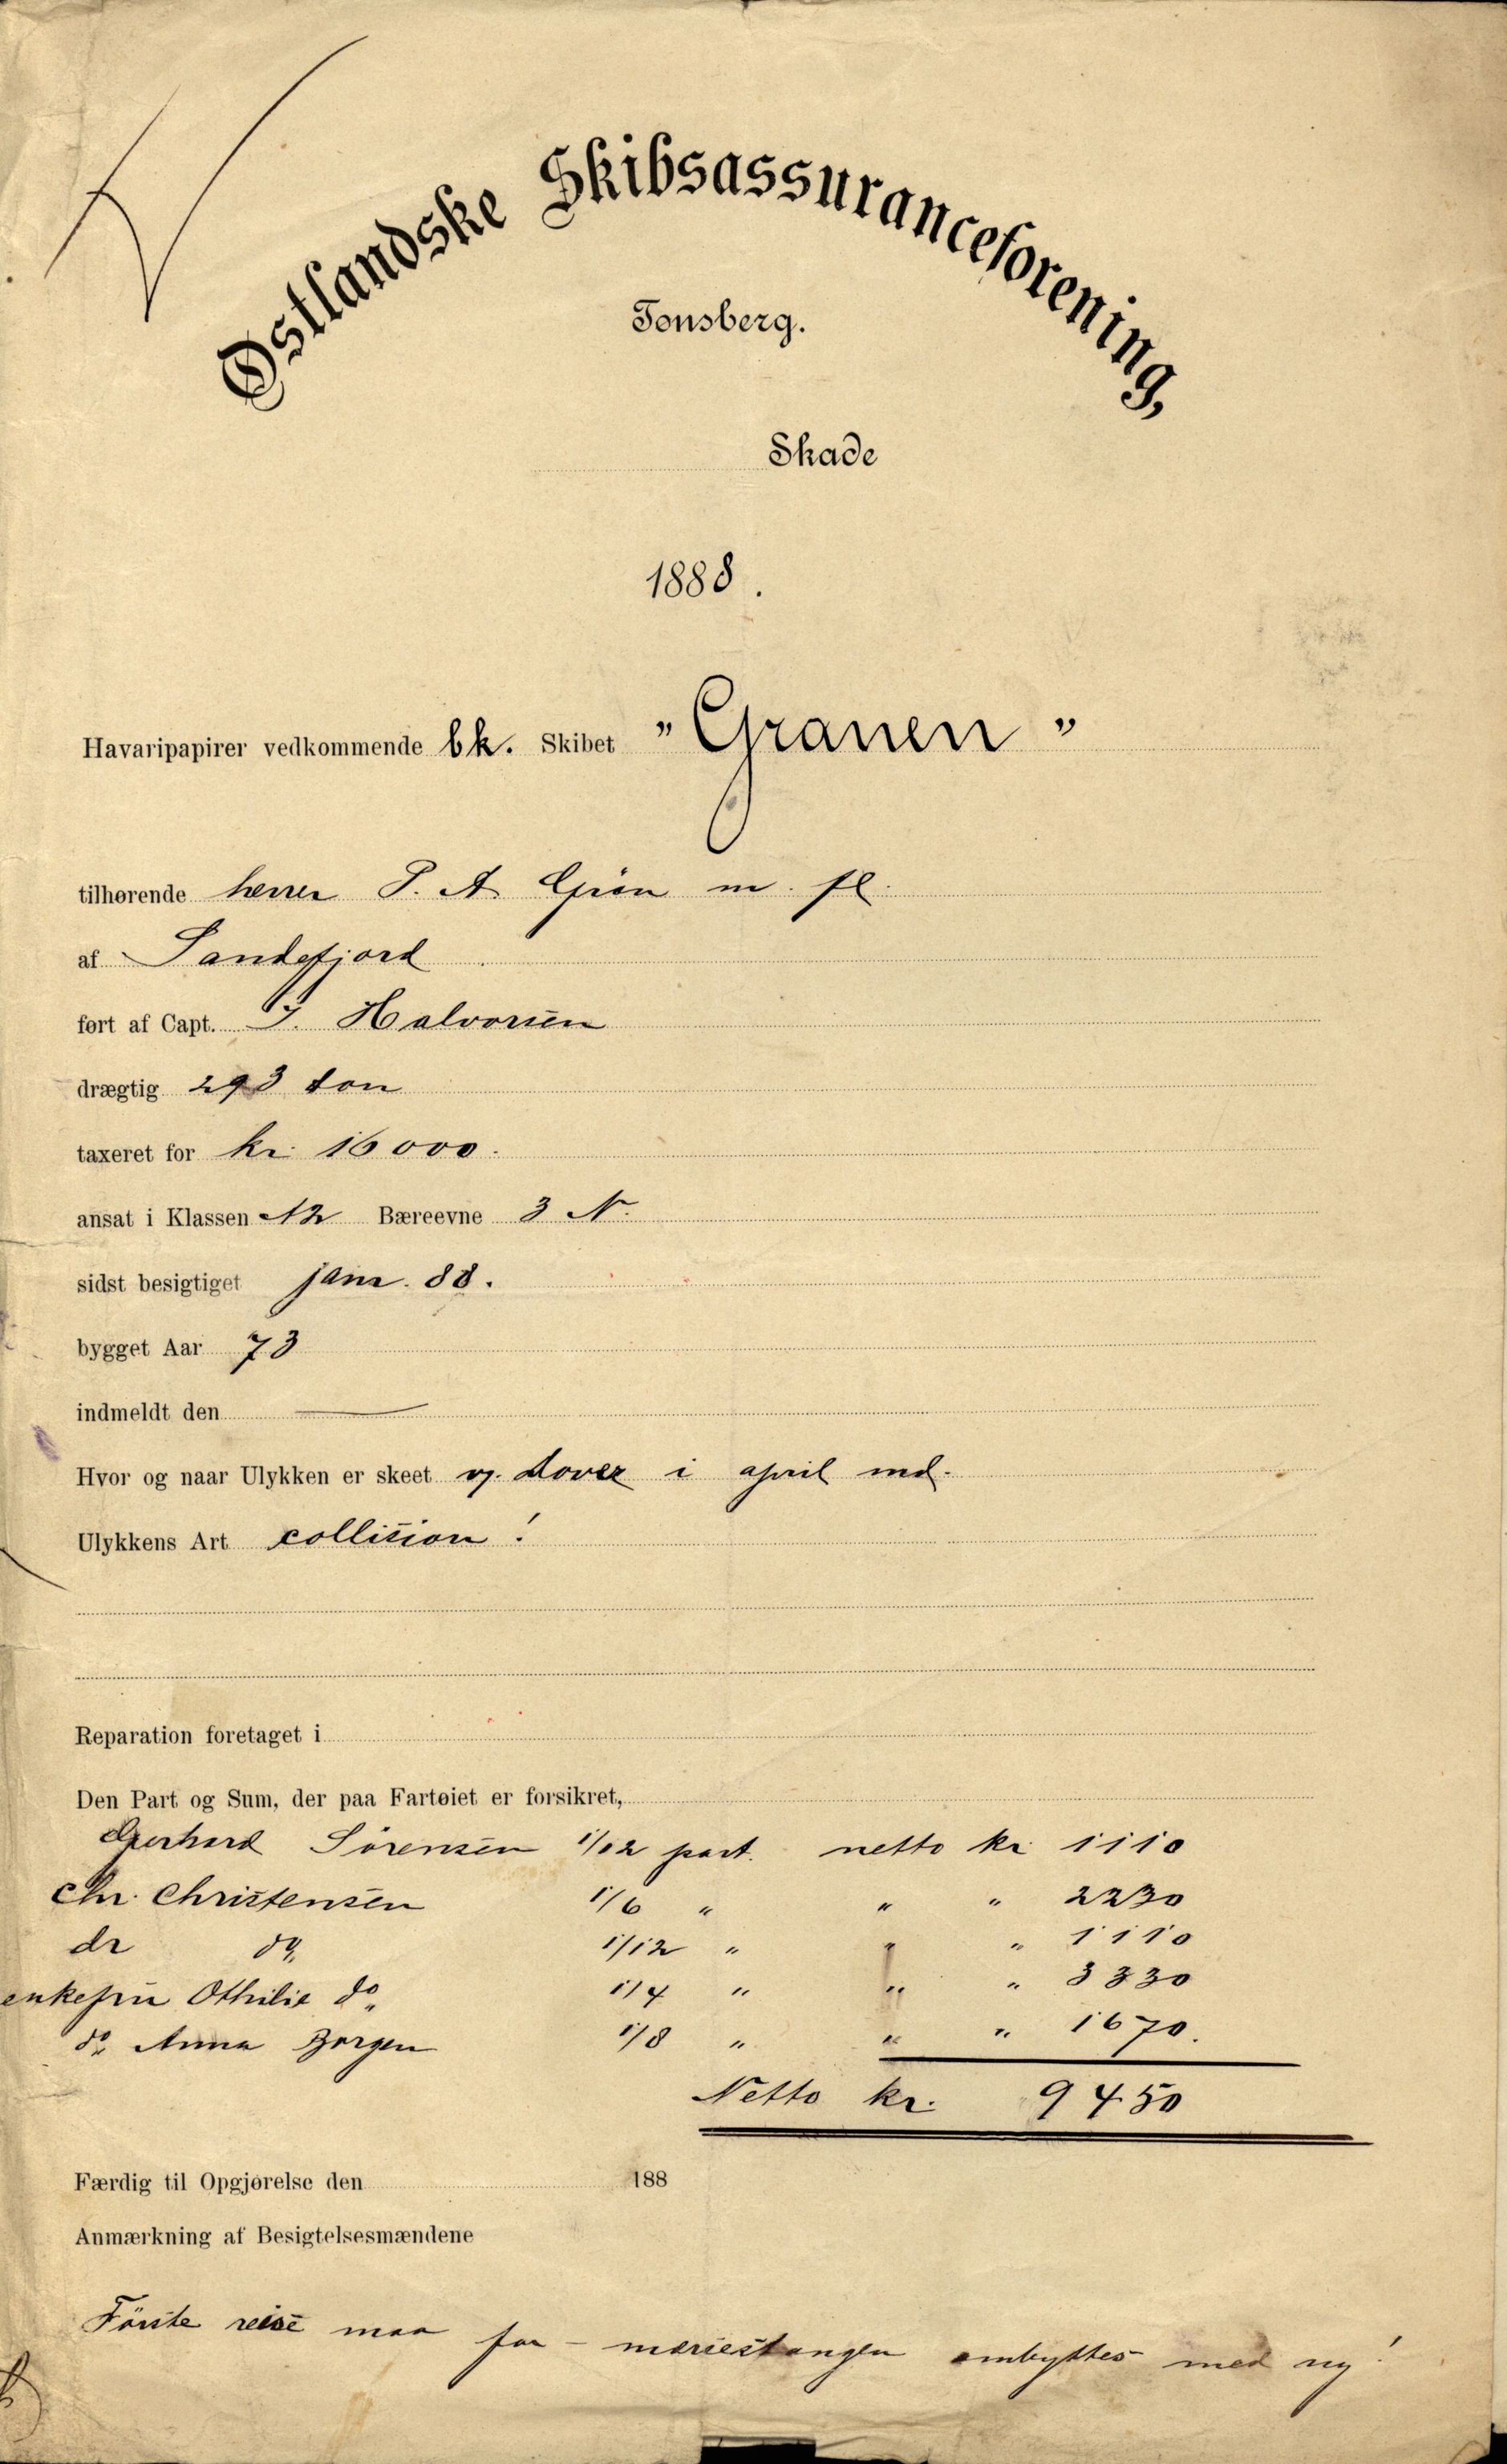 Østlandske Skibsassuranceforening,
Tønsberg.
Skade
1888.
Havaripapirer vedkommende bk. Skibet "Granen"
tilhørende herrer P. A. Grøn m. fl.
af Sandefjord
ført af Capt. J. Halvorsen
drægtig 293 ton
taxeret for kr. 16000.
ansat i Klassen A2 Bæreevne 3 N.
sidst besigtiget janr. 88.
bygget Aar 73
indmeldt den
Hvor og naar Ulykken er skeet v. Dover i april md.
Ulykkens Art collision!
Reparation foretaget i
Den Part og Sum, der paa Fartøiet er forsikret,
Gerhard Sörensen 1/12 part. netto kr 1110
Chr. Christensen 1/6 " " " 2230
do do 1/12 " " " 1110
enkefru Othilie do 1/4 " " " 3330
do Anna Borgen 1/8 " " " 1670.
Netto kr. 9450
Færdig til Opgjørelse den 188
Anmærkning af Besigtelsesmændene
Förste reise maa for - mersestangen ombyttes med ny!